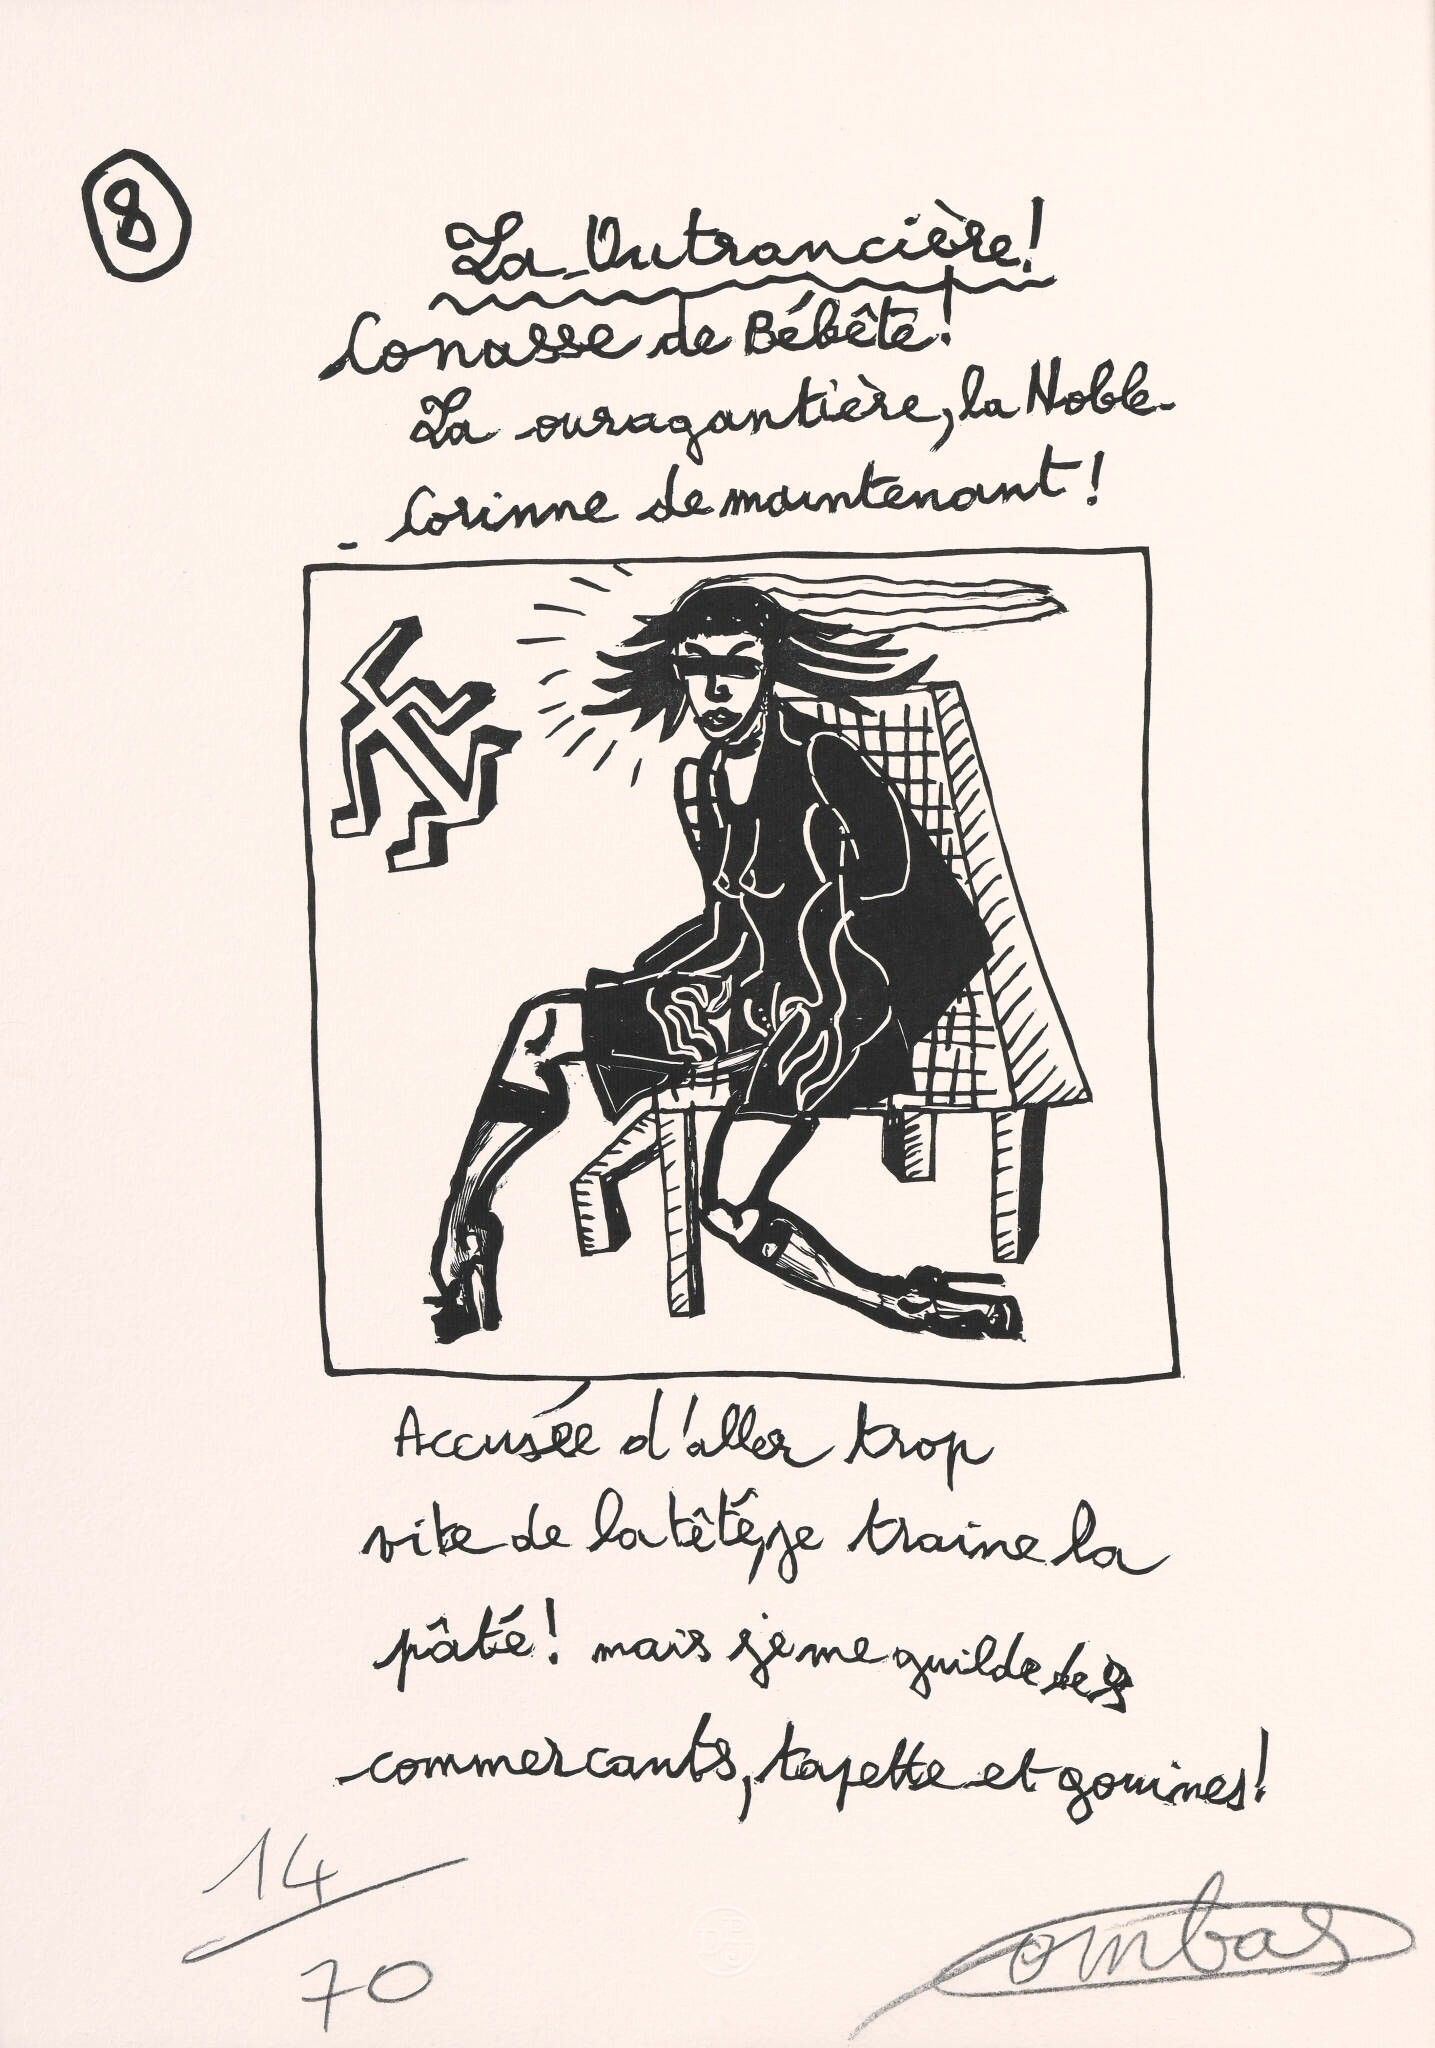 8
La Outrancière!
Conasse de Bébête!
La ouragantière, la Noble
- Corinne de maintenant!
Accusée d'aller trop
vite de la têté, je traine la
pâté! mais je me guilde des
commercants, tapette et gouines!
14/70
Combas